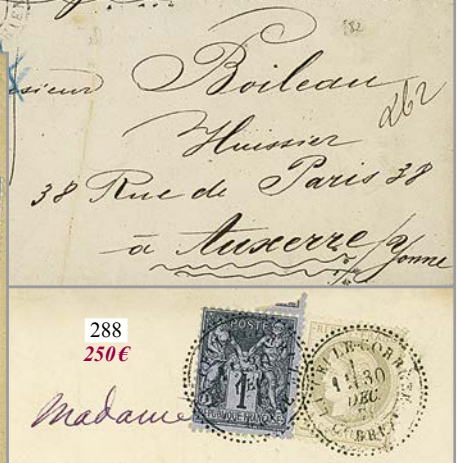 182
sieur Boileau
262
Huissier
38 Rue de Paris 38
à Auxerre / Yonne
288
250 €
POSTE
1
REPUBLIQUE FRANÇAISE
30
DEC
Madame